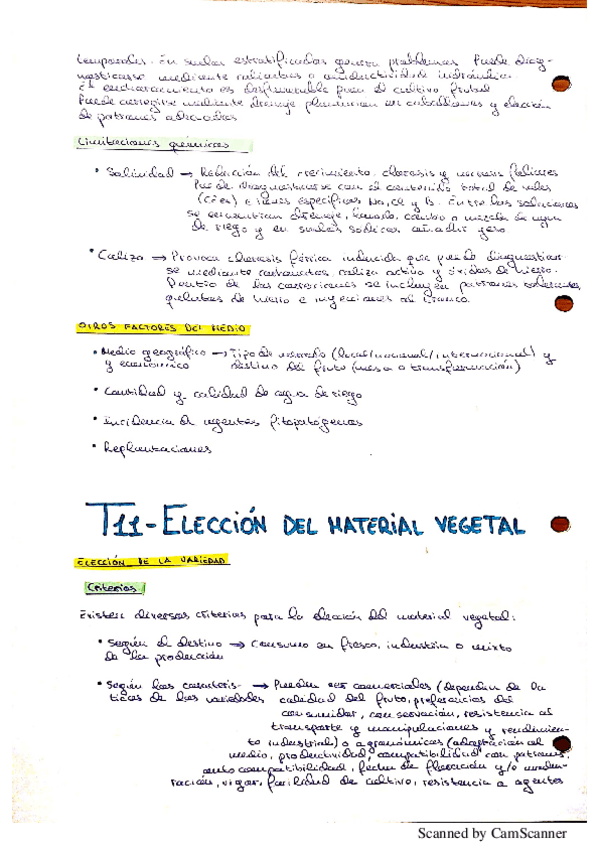 temporales. En suelos estratificados genera problemas. Puede diag-
nosticarse mediante calicatas o conductividad hidráulica.
El encharcamiento es desfavorable para el cultivo frutal
Puede corregirse mediante drenaje plantación en caballones y elección
de patrones adecuados
Limitaciones químicas
• Salinidad → Reducción del crecimiento, clorosis y necrosis foliares
Puede diagnosticarse con el contenido total de sales
(CEes) e iones específicos Na, Cl y B. Entre las soluciones
se encuentran drenaje, lavado, cambio o mezcla de agua
de riego y en suelos sódicos añadir yeso
• Caliza → Provoca clorosis férrica inducida que puede diagnosticar-
se mediante carbonatos, caliza activa y óxidos de hierro.
Dentro de las correcciones se incluyen patrones tolerantes,
quelatos de hierro e inyecciones al tronco.
OTROS FACTORES DEL MEDIO
• Medio geográfico → Tipo de mercado (local/nacional/internacional) y
y económico destino del fruto (mesa o transformación)
• Cantidad y calidad de agua de riego
• Incidencia de agentes fitopatógenos
• Replantaciones
T11-ELECCIÓN DEL MATERIAL VEGETAL
ELECCIÓN DE LA VARIEDAD
Criterios
Existen diversos criterios para la elección del material vegetal:
• Según el destino → Consumo en fresco, industria o mixto
de la producción
• Según las caracterís- → Pueden ser comerciales (dependen de la
ticas de las variedades calidad del fruto, preferencias del
consumidor, conservación, resistencia al
transporte y manipulaciones y rendimien-
to industrial) o agronómicas (adaptación al
medio, productividad, compatibilidad con patrones,
autocompatibilidad, fecha de floración y/o madu-
ración, vigor, facilidad de cultivo, resistencia a agentes
Scanned by CamScanner